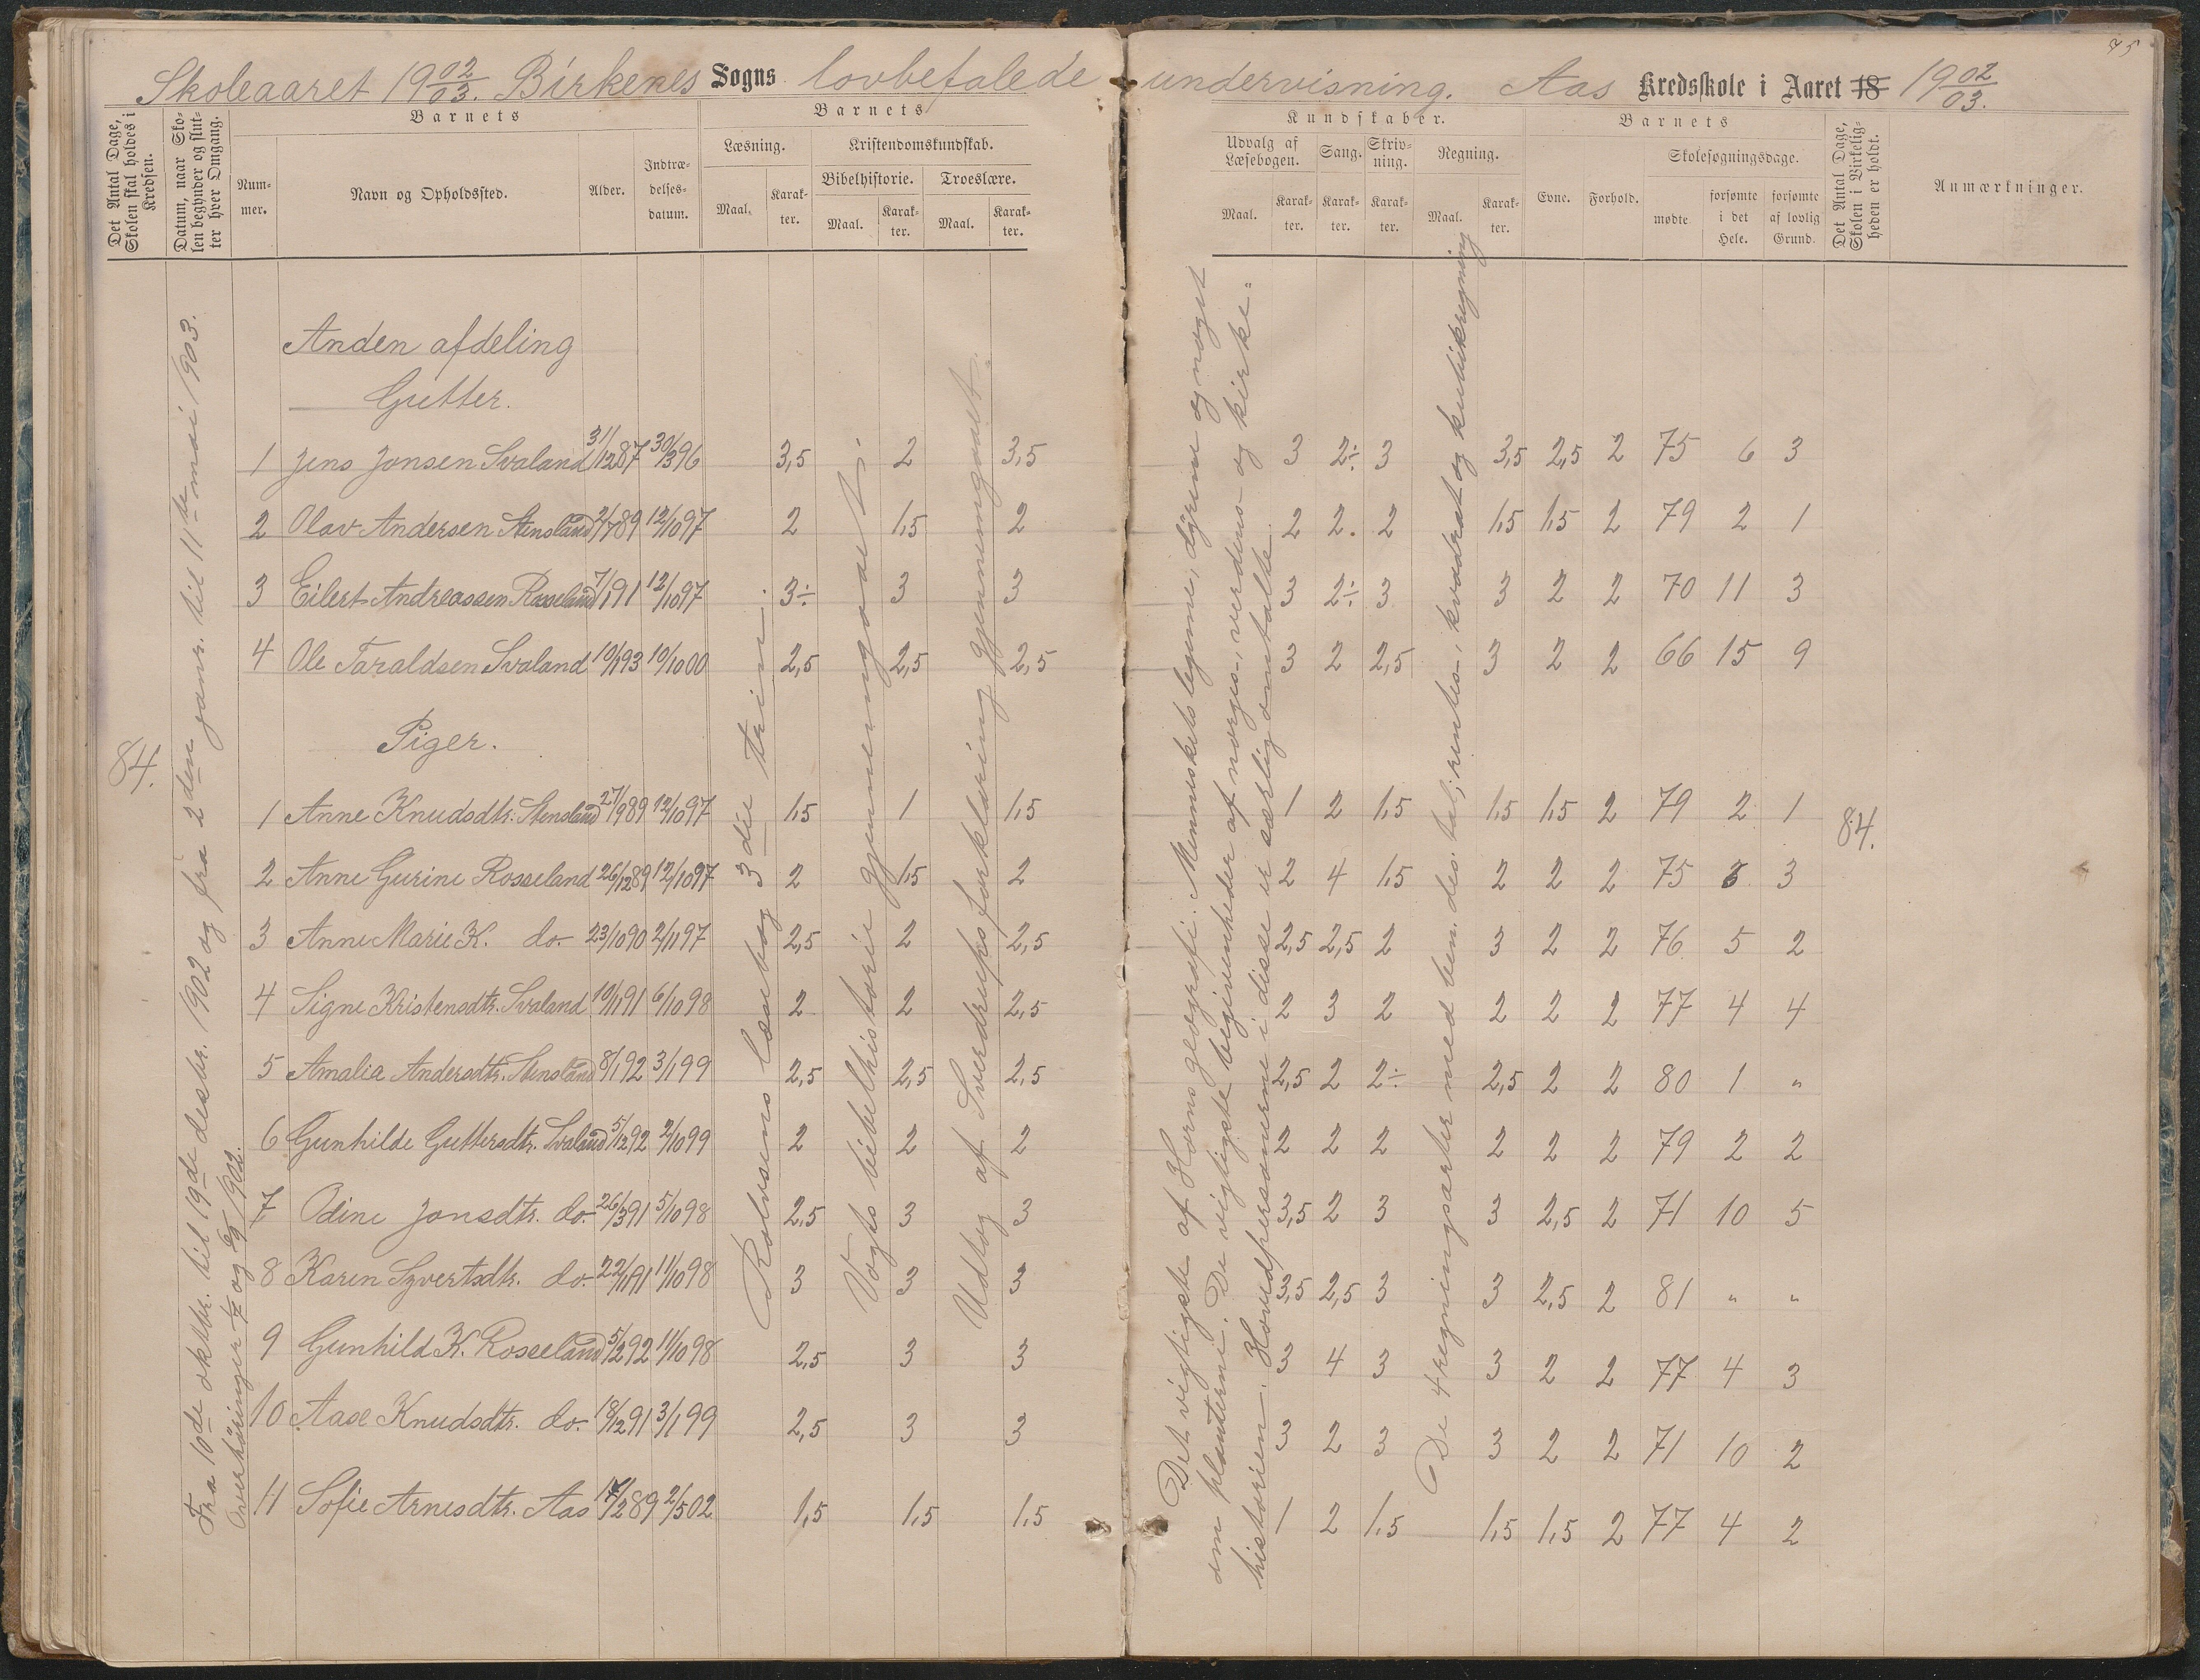 75
Skoleaaret 19 02/03. Birkenes Sogns lovbefalede undervisning. Aas Kredsskole i Aaret 18 19 02/03.
Det Antal Dage, Skolen skal holdes i Kredsen.
Datum, naar Skolen begynder og slutter hver Omgang.
Barnets
Nummer.
Navn og Opholdssted.
Alder.
Indtrædelsesdatum.
Barnets
Læsning.
Kristendomskundskab.
Bibelhistorie.
Troeslære.
Maal. Karakter. Maal. Karakter. Maal. Karakter.
Kundskaber.
Udvalg af Læsebogen.
Sang.
Skrivning.
Regning.
Maal. Karakter. Karakter. Karakter. Maal. Karakter.
Barnets
Evne. Forhold.
Skolesøgningsdage.
mødte
forsømte i det Hele.
forsømte af lovlig Grund.
Det Antal Dage, Skolen i Virkeligheden er holdt.
Anmærkninger.
84.
Fra 10de oktbr. til 19de desbr. 1902 og fra 2den janr. til 11te mai 1903.
Overhöringer
Anden afdeling
Gutter.
1 Jens Jonsen Svaland 31/1287 30/396 3,5 2 3,5 3 2÷ 3 3,5 2,5 2 75 6 3
2 Olav Andersen Stensland 2/789 12/1097 2 1,5 2 2 2. 2 1,5 1,5 2 79 2 1
3 Eilert Andreassen Rosseland 7/191 12/1097 3÷ 3 3 3 2÷ 3 3 2 2 70 11 3
4 Ole Taraldsen Svaland 10/193 10/1000 2,5 2,5 2,5 3 2 2,5 3 2 2 66 15 9
Piger.
1 Anne Knudsdtr. Stensland 27/989 12/1097 1,5 1 1,5 1 2 1,5 1,5 1,5 2 79 2 1
2 Anne Gurine Rosseland 26/1289 12/1097 2 1,5 2 2 4 1,5 2 2 2 75 5 3
3 Anne Marie K. do. 23/1090 2/1197 2,5 2 2,5 2,5 2,5 2 3 2 2 76 5 2
4 Signe Kristensdtr. Svaland 10/191 6/1098 2 2 2,5 2 3 2 2 2 2 77 4 4
5 Amalia Andersdtr. Stensland 8/192 3/199 2,5 2,5 2,5 2,5 2 2÷ 2,5 2 2 80 1 "
6 Gunhilde Guttersdtr. Svaland 5/1292 2/1099 2 2 2 2 2 2 2 2 2 79 2 2
7 Odine Jonsdtr. do. 26/391 5/1098 2,5 3 3 3,5 2 3 3 2,5 2 71 10 5
8 Karen Syvertsdtr. do. 22/191 11/1098 3 3 3 3,5 2,5 3 3 2,5 2 81 " "
9 Gunhild K. Rosseland 5/292 11/1098 2,5 3 3 3 4 3 3 2 2 77 4 3
10 Aase Knudsdtr. do. 18/1291 3/199 2,5 3 3 3 2 3 3 2 2 71 10 2
11 Sofie Arnesdtr. Aas 17/289 2/502 1,5 1,5 1,5 1 2 1,5 1,5 1,5 2 77 4 2
Rolvsens læsebog 3die trin.
Vogts bibelhistorie gjennemgaaet.
Udtog af Sverdrups forklaring gjennemgaaet.
Det vigtigste af Horns geografi. Menneskets legeme, dyrene og noget
om planterne. De vigtigste begivenheder af norges-, verdens- og kirke-
historien. Hovedpersonerne i disse er særlig omtalte.
De 4 regningsarter med ben. des. tal; rentes-, kvadrat og kubikregning
84.